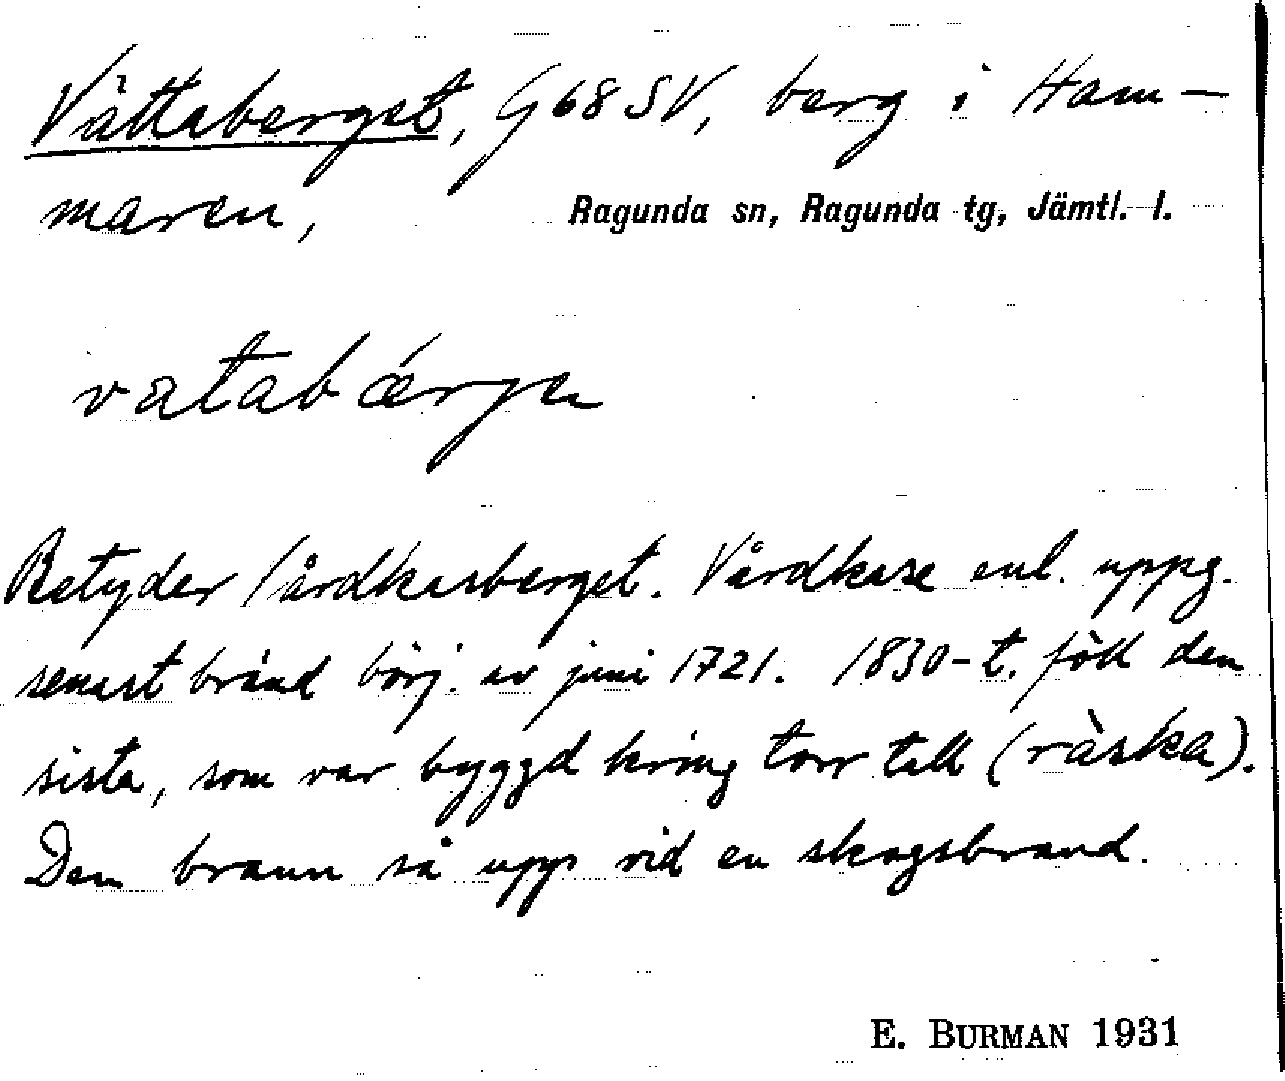 Vättaberget, G68SV, berg i Ham-
maren, Ragunda sn, Ragunda tg, Jämtl. l.
vatabǽrge
Betyder Vårdkasberget. Vårdkase enl. uppg.
senast bränd börj. av juni 1721. 1830-t. föll den
sista, som var byggd kring torr tall (ràska).
Den brann så upp vid en skogsbrand.
E. BURMAN 1931